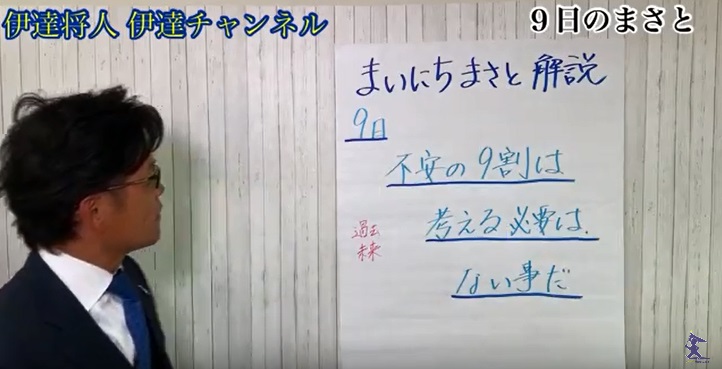 伊達将人 伊達チャンネル
９日のまさと
まいにちまさと 解説
9日
不安の9割は
考える必要は、
ない事だ
過去
未来